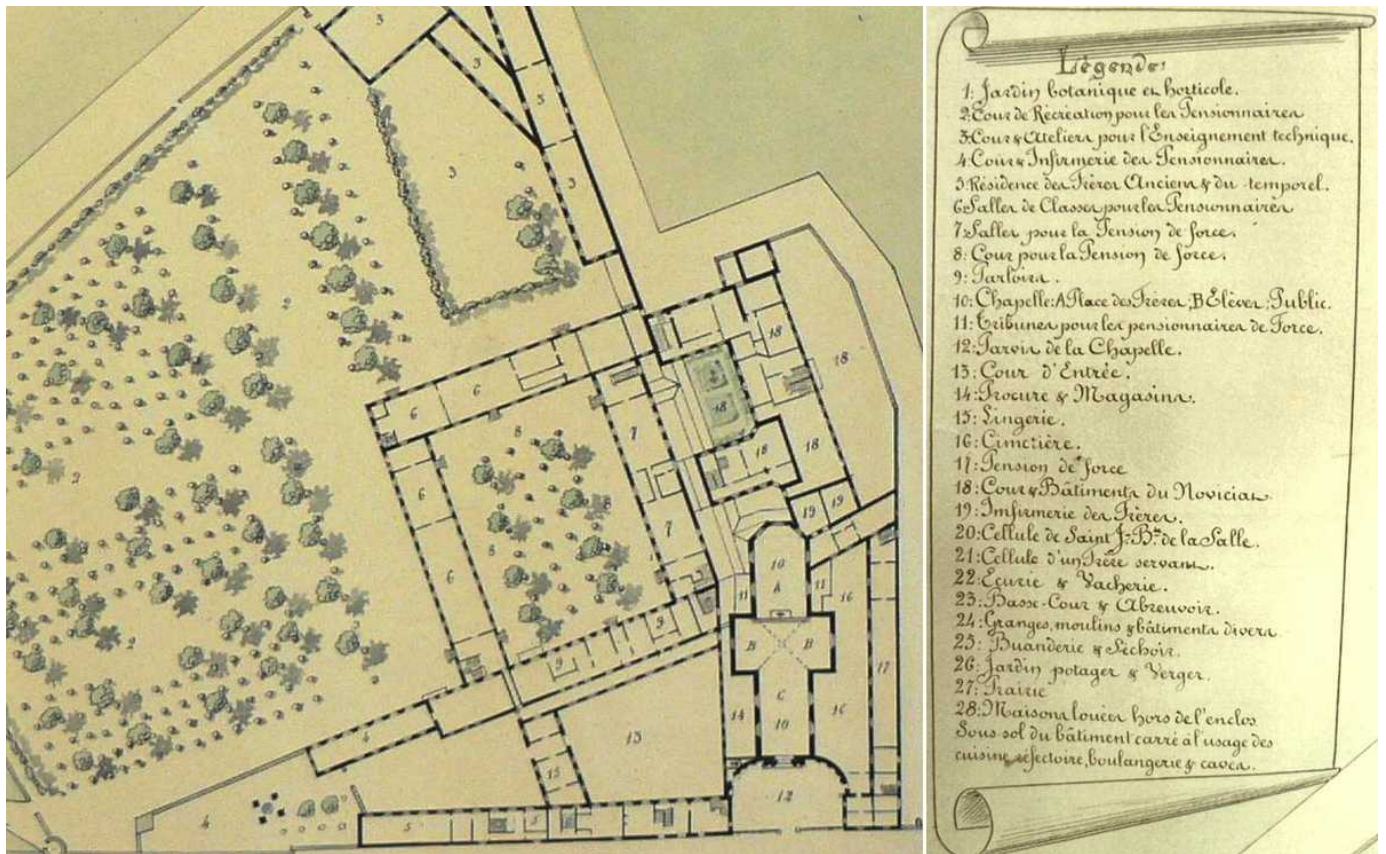 3
3
3
3 3
2
18
18
6
6 18
8 7
18 18
2
6
19
19
7
8 10
6
A
11 11 16
9
2 B B
9 17
C
4 13 14 10 16
15
12
4 5 5
Légende:
1: Jardin botanique et horticole.
2: Cour de Récréation pour les Pensionnaires
3: Cour & Ateliers pour l'Enseignement technique.
4: Cour & Infirmerie des Pensionnaires.
5: Résidence des Frères Anciens & du temporel.
6: Salles de Classes pour les Pensionnaires
7: Salles pour la Pension de force.
8: Cour pour la Pension de force.
9: Parloirs.
10: Chapelle: A Place des Frères; B Elèves; Public.
11: Tribunes pour les pensionnaires de Force.
12: Parvis de la Chapelle.
13: Cour d'Entrée.
14: Procure & Magasins.
15: Lingerie.
16: Cimetière.
17: Pension de force
18: Cour & Bâtiments du Noviciat
19: Imfirmerie des Frères.
20: Cellule de Saint J-Bte de la Salle.
21: Cellule d'un Frère servant.
22: Ecurie & Vacherie.
23: Basse-Cour & Abreuvoir.
24: Granges, moulins & bâtiments divers
25: Buanderie & Séchoir.
26: Jardin potager & Verger.
27: Prairie
28: Maisons louées hors de l'enclos
Sous sol du bâtiment carré à l'usage des
cuisine, réfectoire, boulangerie & caves.